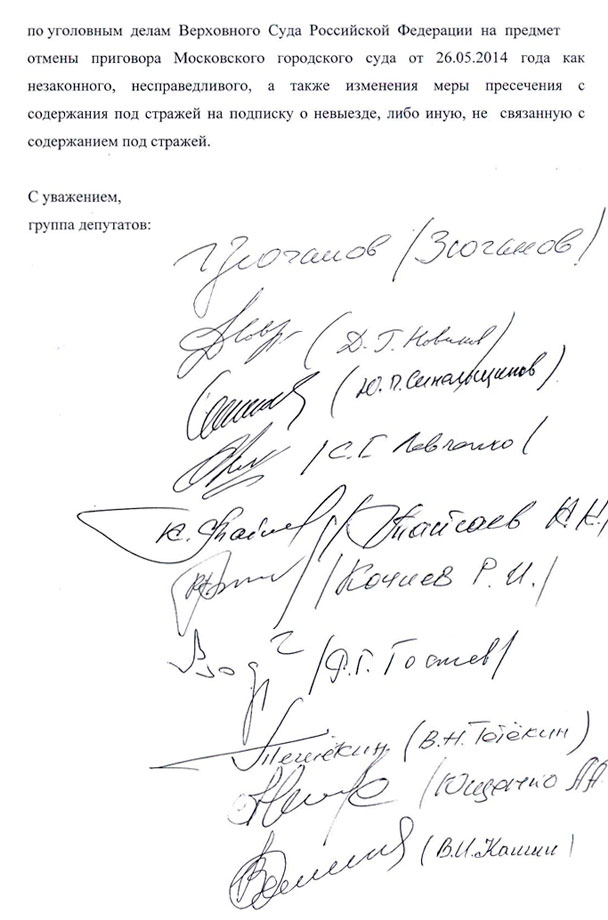 по уголовным делам Верховного Суда Российской Федерации на предмет
отмены приговора Московского городского суда от 26.05.2014 года как
незаконного, несправедливого, а также изменения меры пресечения с
содержания под стражей на подписку о невыезде, либо иную, не связанную с
содержанием под стражей.
С уважением,
группа депутатов:
(Зюганов)
(Д.Г. Новиков)
(Ю.П. Синельщиков)
/С.Г. Левченко/
К. Тайсаев /Тайсаев К.К./
/Кочиев Р.И./
Тетёкин. (В.Н. Тетёкин)
/Ющенко А.А.
(В.И. Кашин)